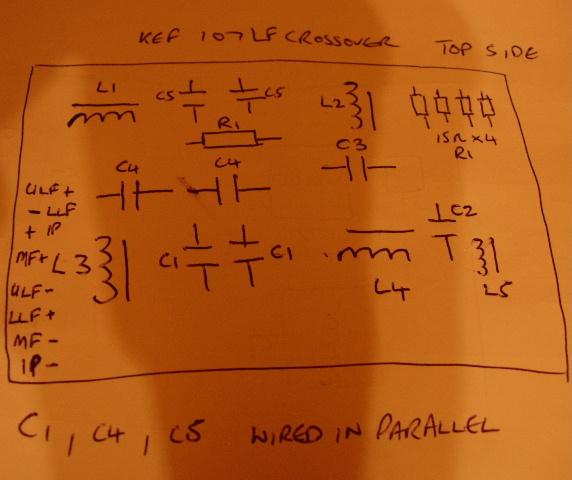 KEF 107 LF CROSSOVER TOP SIDE
L1 C5 C5 L2
R1
15Ω x4
R1
C3
C4 C4
ULF+
- LLF
+ IP
MF+
ULF-
LLF+
MF-
IP-
L3 C1 C1 L4 C2 L5
C1, C4, C5 WIRED IN PARALLEL